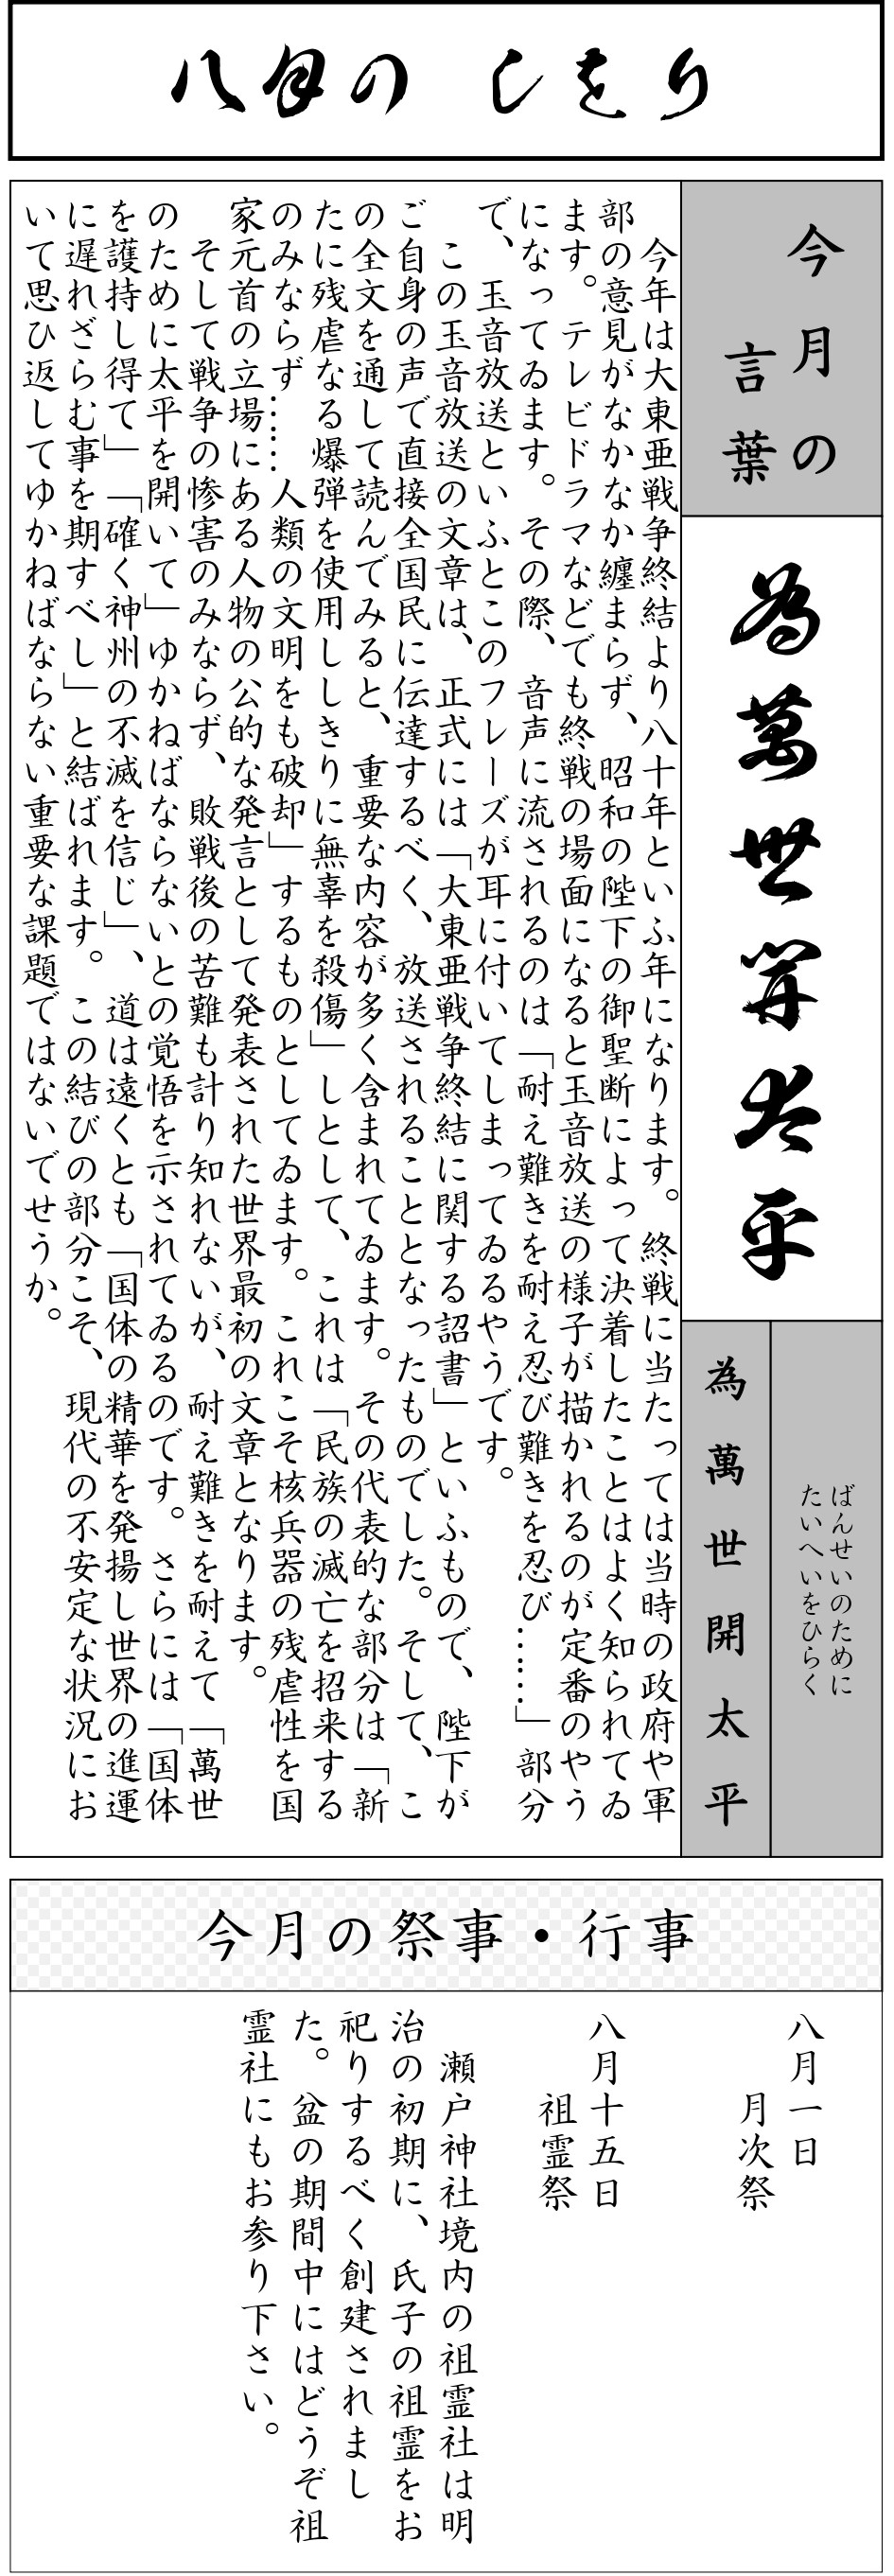 八月の しをり
今月の
言葉
為萬世開太平
ばんせいのために
たいへいをひらく
為萬世開太平
今年は大東亜戦争終結より八十年といふ年になります。終戦に当たっては当時の政府や軍
部の意見がなかなか纏まらず、昭和の陛下の御聖断によって決着したことはよく知られてゐ
ます。テレビドラマなどでも終戦の場面になると玉音放送の様子が描かれるのが定番のやう
になってゐます。その際、音声に流されるのは「耐え難きを耐え忍び難きを忍び……」部分
で、玉音放送といふとこのフレーズが耳に付いてしまってゐるやうです。
この玉音放送の文章は、正式には「大東亜戦争終結に関する詔書」といふもので、陛下が
ご自身の声で直接全国民に伝達するべく、放送されることとなったものでした。そして、こ
の全文を通して読んでみると、重要な内容が多く含まれてゐます。その代表的な部分は「新
たに残虐なる爆弾を使用ししきりに無辜を殺傷」しとして、これは「民族の滅亡を招来する
のみならず……人類の文明をも破却」するものとしてゐます。これこそ核兵器の残虐性を国
家元首の立場にある人物の公的な発言として発表された世界最初の文章となります。
そして戦争の惨害のみならず、敗戦後の苦難も計り知れないが、耐え難きを耐えて「萬世
のために太平を開いて」ゆかねばならないとの覚悟を示されてゐるのです。さらには「国体
を護持し得て」「確く神州の不滅を信じ」、道は遠くとも「国体の精華を発揚し世界の進運
に遅れざらむ事を期すべし」と結ばれます。この結びの部分こそ、現代の不安定な状況にお
いて思ひ返してゆかねばならない重要な課題ではないでせうか。
今月の祭事・行事
八月一日
月次祭
八月十五日
祖霊祭
瀬戸神社境内の祖霊社は明
治の初期に、氏子の祖霊をお
祀りするべく創建されまし
た。盆の期間中にはどうぞ祖
霊社にもお参り下さい。